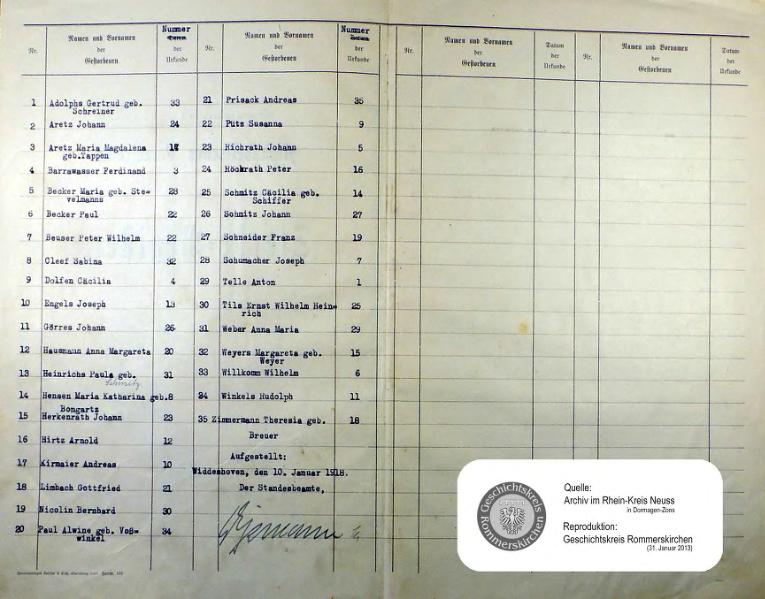 Nr.
Namen und Vornamen
der
Gestorbenen
Nummer
der
Urkunde
Nr.
Namen und Vornamen
der
Gestorbenen
Nummer
der
Urkunde
Nr.
Namen und Vornamen
der
Gestorbenen
Datum
der
Urkunde
Nr.
Namen und Vornamen
der
Gestorbenen
Datum
der
Urkunde
1 Adolphs Gertrud geb. 33
Schreiner
2 Aretz Johann 24
3 Aretz Maria Magdalena
geb.Tappen
4 Barrawasser Ferdinand 3
5 Becker Maria geb. Ste=
velmanns
6 Becker Paul
7 Beuser Peter Wilhelm 22
8 Cleef Sabina 32
9 Dolfen Cäcilia 4
10 Engels Joseph 13
11 Görres Johann 26
12 Hausmann Anna Margareta 20
13 Heinrichs Paula geb. 31
Schmitz
14 Hensen Maria Katharina geb. 8
Bongartz
15 Herkenrath Johann 23
16 Hirtz Arnold 12
17 Kirmaier Andreas 10
18 Limbach Gottfried 21
19 Nicolin Bernhard 30
20 Paul Alwine geb. Voß= 34
winkel
21 Prisack Andreas 35
22 Püts Susanna 9
23 Richrath Johann 5
24 Röckrath Peter 16
25 Schmitz Cäcilia geb. 14
Schiffer
26 Schmitz Johann 27
27 Schneider Franz 19
28 Schumacher Joseph 7
29 Telle Anton 1
30 Tils Ernst Wilhelm Hein= 25
rich
31 Weber Anna Maria 29
32 Weyers Margareta geb. 15
Weyer
33 Willkomm Wilhelm 6
34 Winkels Rudolph 11
35 Zimmermann Theresia geb. 18
Breuer
Aufgestellt:
Widdeshoven, den 10. Januar 1918.
Der Standesbeamte,
Geschichtskreis
Rommerskirchen
Quelle:
Archiv im Rhein-Kreis Neuss
in Dormagen-Zons
Reproduktion:
Geschichtskreis Rommerskirchen
(31. Januar 2013)